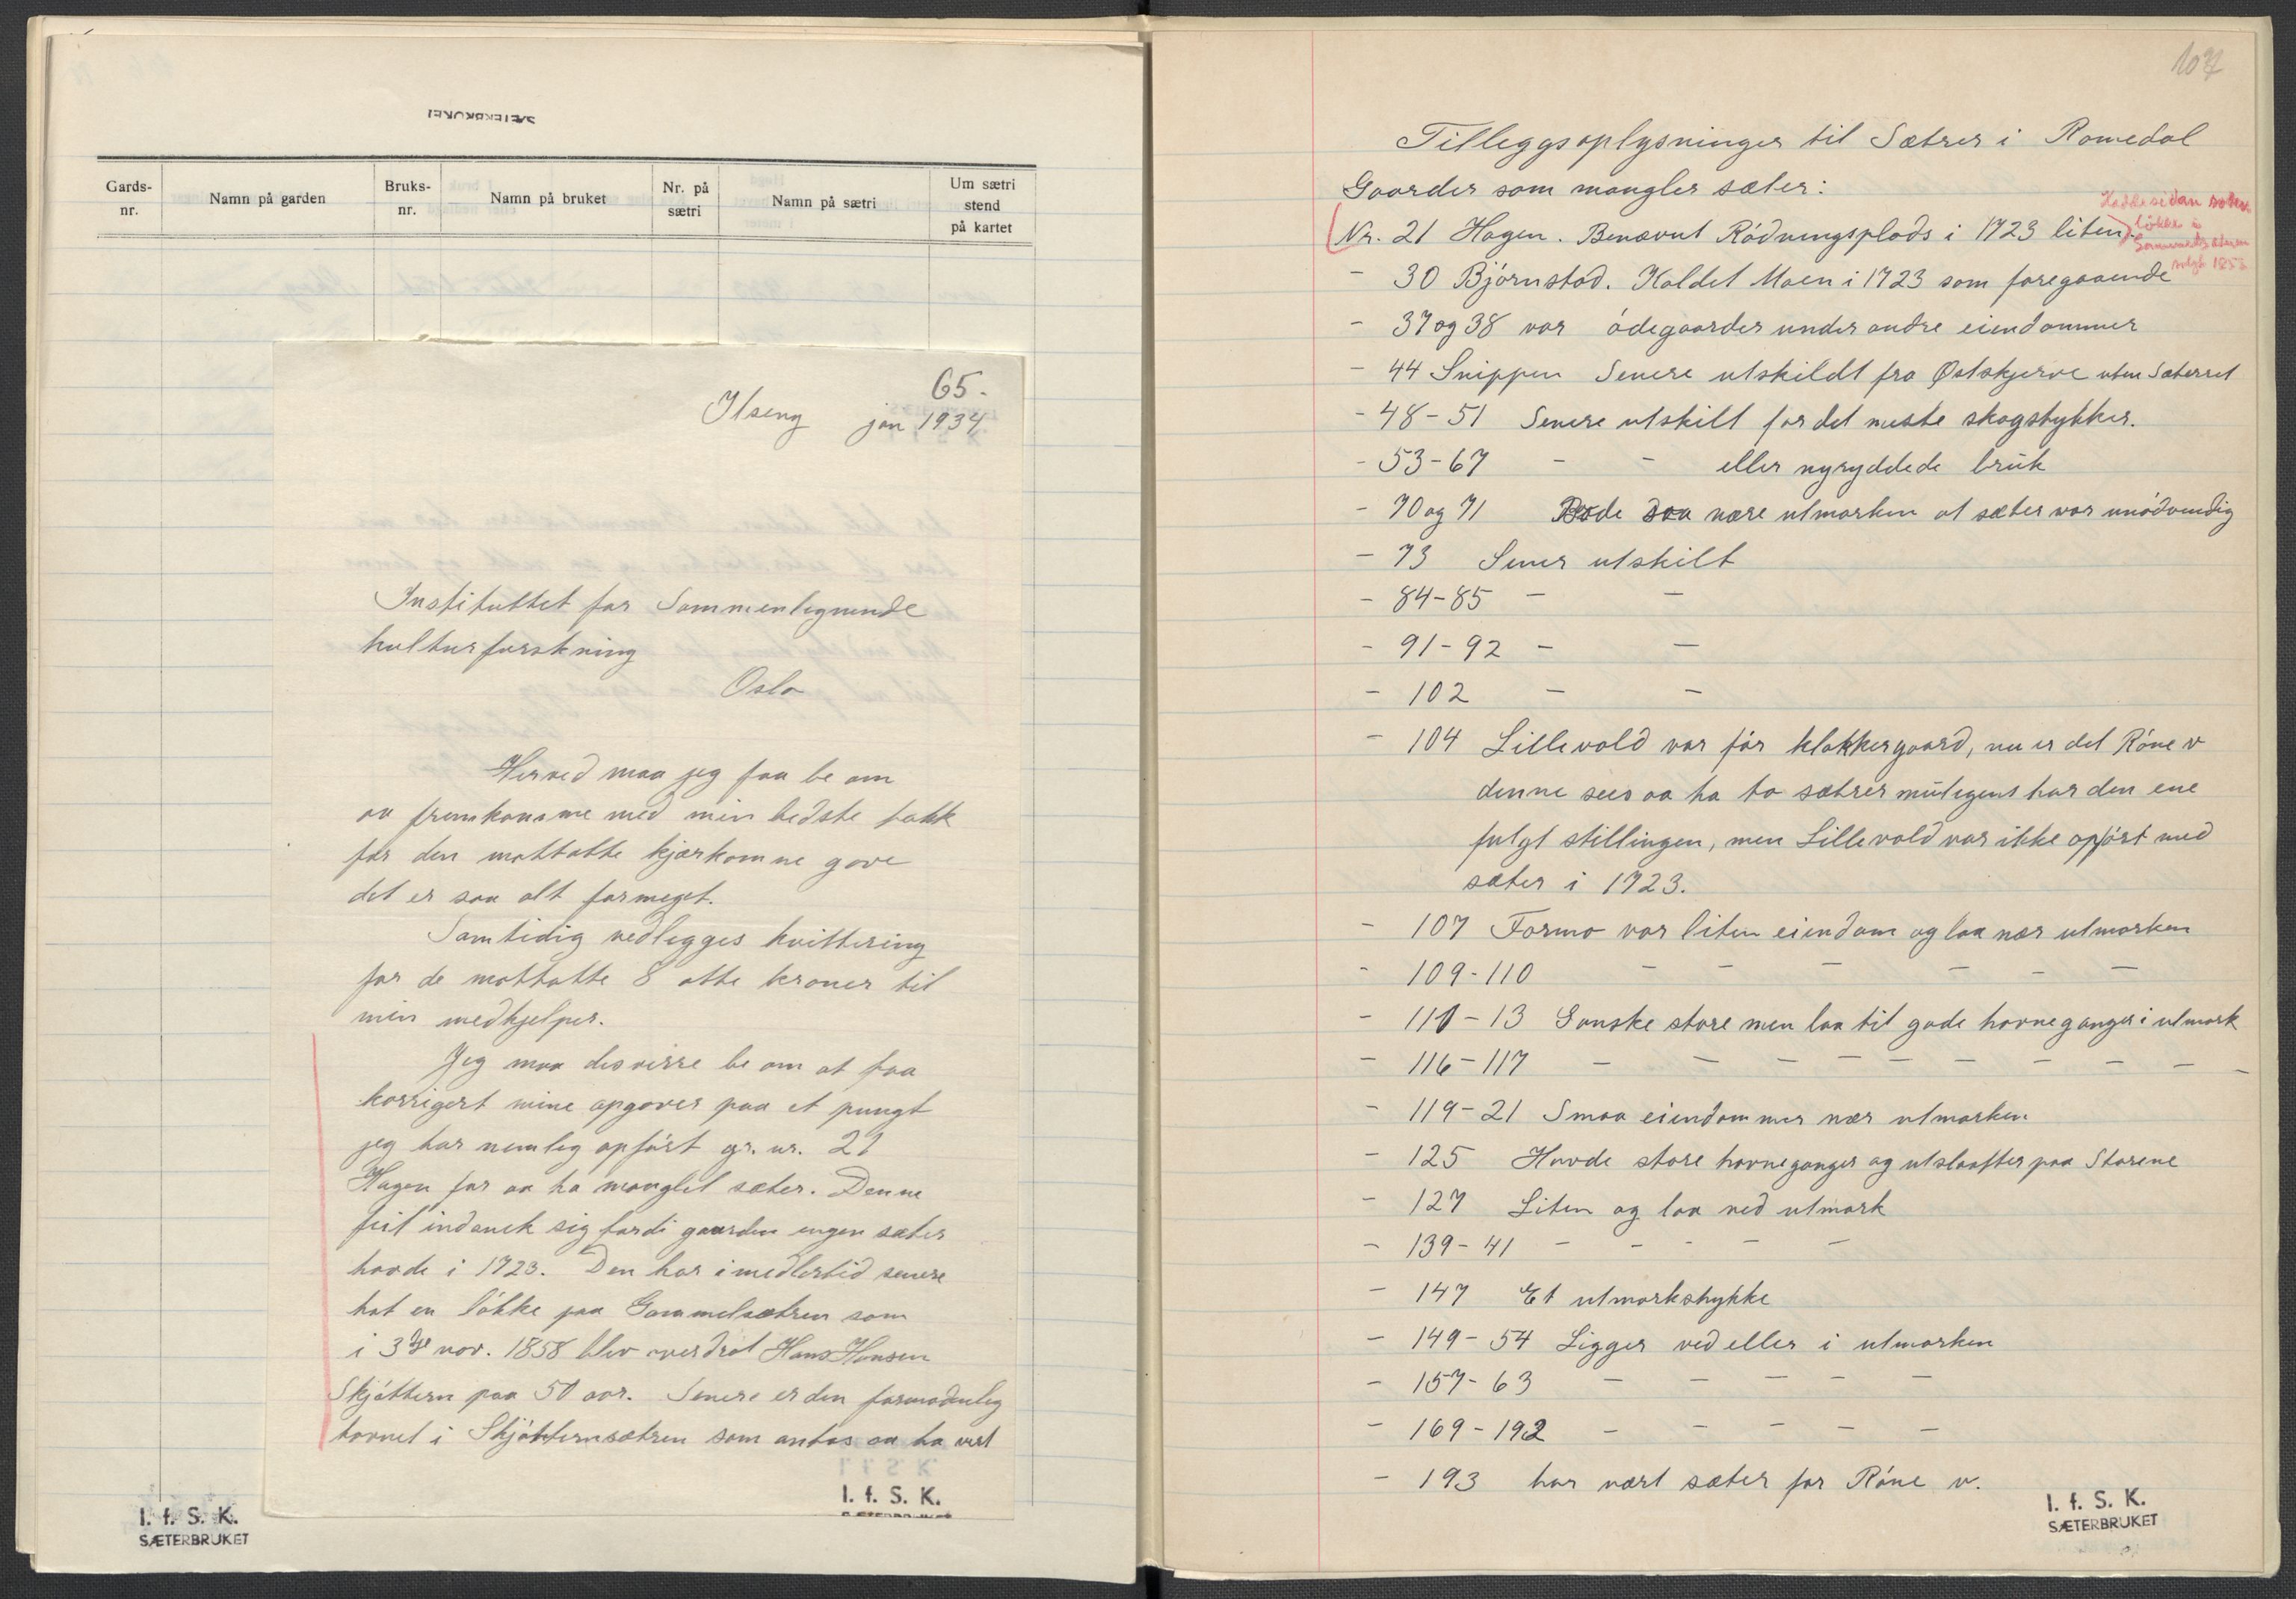 SÆTERBRUKET
Gards-
nr.
Namn på garden
Bruks-
nr.
Namn på bruket
Nr. på
sætri
Namn på sætri
Um sætri
stend
på kartet
65.
Ilseng jan 1934
Instituttet for Sammenlignende
kulturforskning
Oslo
Herved maa jeg faa be om
aa fremkomme med min bedste takk
for den mottatte kjærkomne gave
det er saa alt formeget.
Samtidig vedlegges kvittering
for de mottatte 8 otte kroner til
min medhjelper.
Jeg maa desværre be om at faa
korrigert mine opgaver paa et pungt
jeg har nemlig opført gr. nr. 21
Hagen for aa ha manglet sæter. Denne
feil indsnek sig fordi gaarden ingen sæter
havde i 1723. Den har imedlertid senere
hat en løkke paa Gammelsætren som
i 3de nov. 1858 blev overdrat Hans Hansen
Skjøttern paa 50 aar. Senere er den formodenlig
havnet i Skjøtternsætren som antas aa ha vært
I. f. S. K.
I. f. S. K.
SÆTERBRUKET
107
Tilleggsoplysninger til Sætrer i Romedal
Gaarder som mangler sæter:
Hadde sidan
løkke i
Gammelsæteren
solgt 1858
Nr. 21 Hagen. Benævnt Rødningsplads i 1723 liten.
- 30 Bjørnstad. Kaldet Moen i 1723 som foregaaende
- 37 og 38 var ødegaarder under andre eiendommer
- 44 Snippen Senere utskildt fra Østskjerve uten Sæterret
- 48-51 Senere utskilt for det meste skogstykker.
- 53-67 - - eller nyryddede bruk
- 70 og 71 Bode saa nære utmarken at sæter var unødvendig
- 73 Sener utskilt
- 84-85 - -
- 91-92 - -
- 102 - -
- 104 Lillevold var før klokkergaard, nu er det Røne v
denne sees aa ha to sætrer muligens har den ene
fulgt stillingen, men Lillevold var ikke opført med
sæter i 1723.
- 107 Formo var liten eiendom og laa nær utmarken
- 109-110 - - - - - -
- 111-13 Ganske store men laa til gode havneganger i utmark
- 116-117 - - - - - - - - - -
- 119-21 Smaa eiendommer nær utmarken
- 125 Havde store havneganger og utslaatter paa Starene
- 127 Liten og laa ved utmark
- 139-41 - - - - -
- 147 Et utmarkstykke
- 149-54 Ligger ved eller i utmarken
- 157-63 - - - - -
- 169-192 - - - - -
- 193 har vært sæter for Røne v.
I. f. S. K.
SÆTERBRUKET